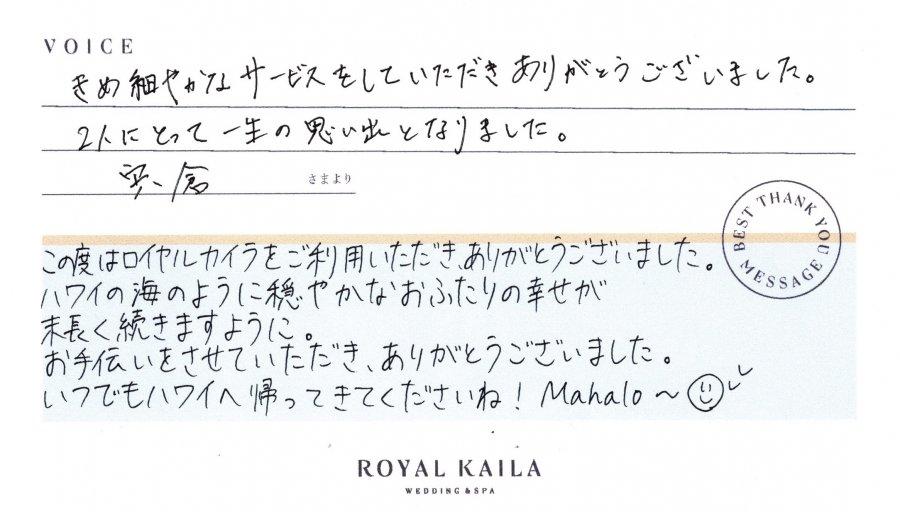 VOICE
きめ細やかなサービスをしていただきありがとうございました。
2人にとって一生の思い出となりました。
宍倉 さまより
BEST THANK YOU MESSAGE
この度はロイヤルカイラをご利用いただき、ありがとうございました。
ハワイの海のように穏やかなおふたりの幸せが
末長く続きますように。
お手伝いをさせていただき、ありがとうございました。
いつでもハワイへ帰ってきてくださいね！ Mahalo〜
ROYAL KAILA
WEDDING & SPA